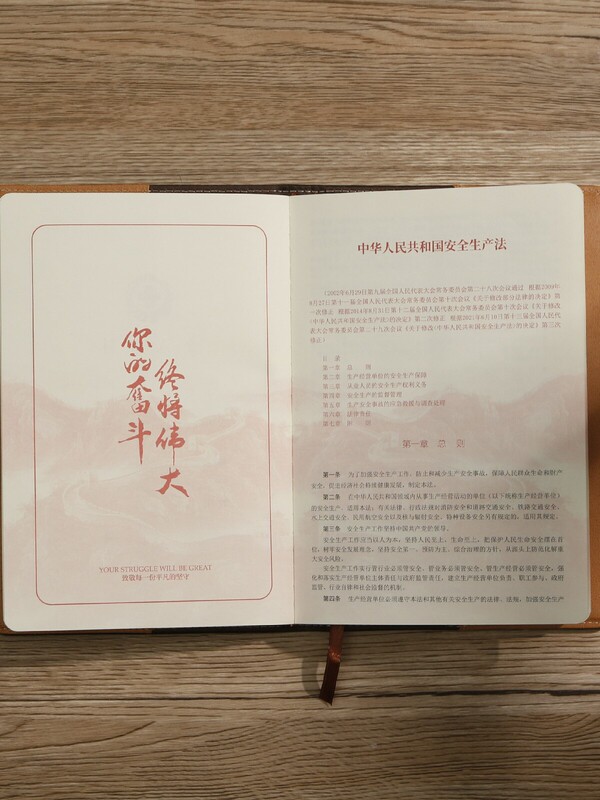 你的奋斗
终将伟大
YOUR STRUGGLE WILL BE GREAT
致敬每一份平凡的坚守
中华人民共和国安全生产法
（2002年6月29日第九届全国人民代表大会常务委员会第二十八次会议通过 根据2009年
8月27日第十一届全国人民代表大会常务委员会第十次会议《关于修改部分法律的决定》第
一次修正 根据2014年8月31日第十二届全国人民代表大会常务委员会第十次会议《关于修改
〈中华人民共和国安全生产法〉的决定》第二次修正 根据2021年6月10日第十三届全国人民代
表大会常务委员会第二十九次会议《关于修改〈中华人民共和国安全生产法〉的决定》第三次
修正）
目 录
第一章 总 则
第二章 生产经营单位的安全生产保障
第三章 从业人员的安全生产权利义务
第四章 安全生产的监督管理
第五章 生产安全事故的应急救援与调查处理
第六章 法律责任
第七章 附 则
第一章 总 则
第一条 为了加强安全生产工作，防止和减少生产安全事故，保障人民群众生命和财产
安全，促进经济社会持续健康发展，制定本法。
第二条 在中华人民共和国领域内从事生产经营活动的单位（以下统称生产经营单位）
的安全生产，适用本法；有关法律、行政法规对消防安全和道路交通安全、铁路交通安全、
水上交通安全、民用航空安全以及核与辐射安全、特种设备安全另有规定的，适用其规定。
第三条 安全生产工作坚持中国共产党的领导。
安全生产工作应当以人为本，坚持人民至上、生命至上，把保护人民生命安全摆在首
位，树牢安全发展理念，坚持安全第一、预防为主、综合治理的方针，从源头上防范化解重
大安全风险。
安全生产工作实行管行业必须管安全、管业务必须管安全、管生产经营必须管安全，强
化和落实生产经营单位主体责任与政府监管责任，建立生产经营单位负责、职工参与、政府
监管、行业自律和社会监督的机制。
第四条 生产经营单位必须遵守本法和其他有关安全生产的法律、法规，加强安全生产